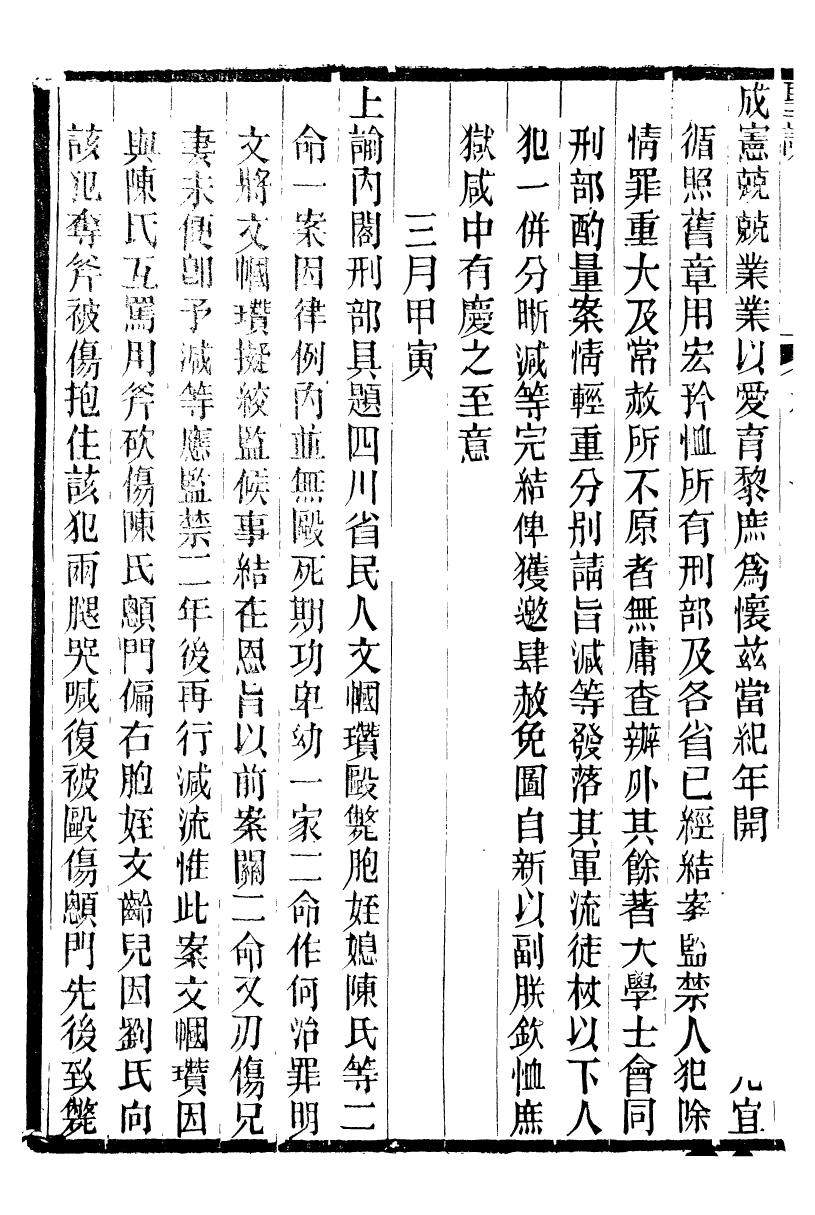 成憲兢兢業業以愛育黎庶爲懷茲當紀年開 宜
循照舊章用宏矜恤所有刑部及各省已經結案監禁人犯除
情罪重大及常赦所不原者無庸查辦外其餘著大學士會同
刑部酌量案情輕重分別請旨減等發落其軍流徒杖以下人
犯一併分晰減等完結俾獲邀肆赦免圖自新以副朕欽恤庶
獄咸中有慶之至意
三月甲寅
上諭內閣刑部具題四川省民人文幗瓚毆斃胞姪媳陳氏等二
命一案因律例內並無毆死期功卑幼一家二命作何治罪明
文將文幗瓚擬絞監候事結在恩旨以前案關二命又刃傷兄
妻未便卽予減等應監禁二年後再行減流惟此案文幗瓚因
與陳氏互罵用斧砍傷陳氏顖門偏右胞姪文齡兒因劉氏向
該犯奪斧被傷抱住該犯兩腿哭喊復被毆傷顖門先後致斃